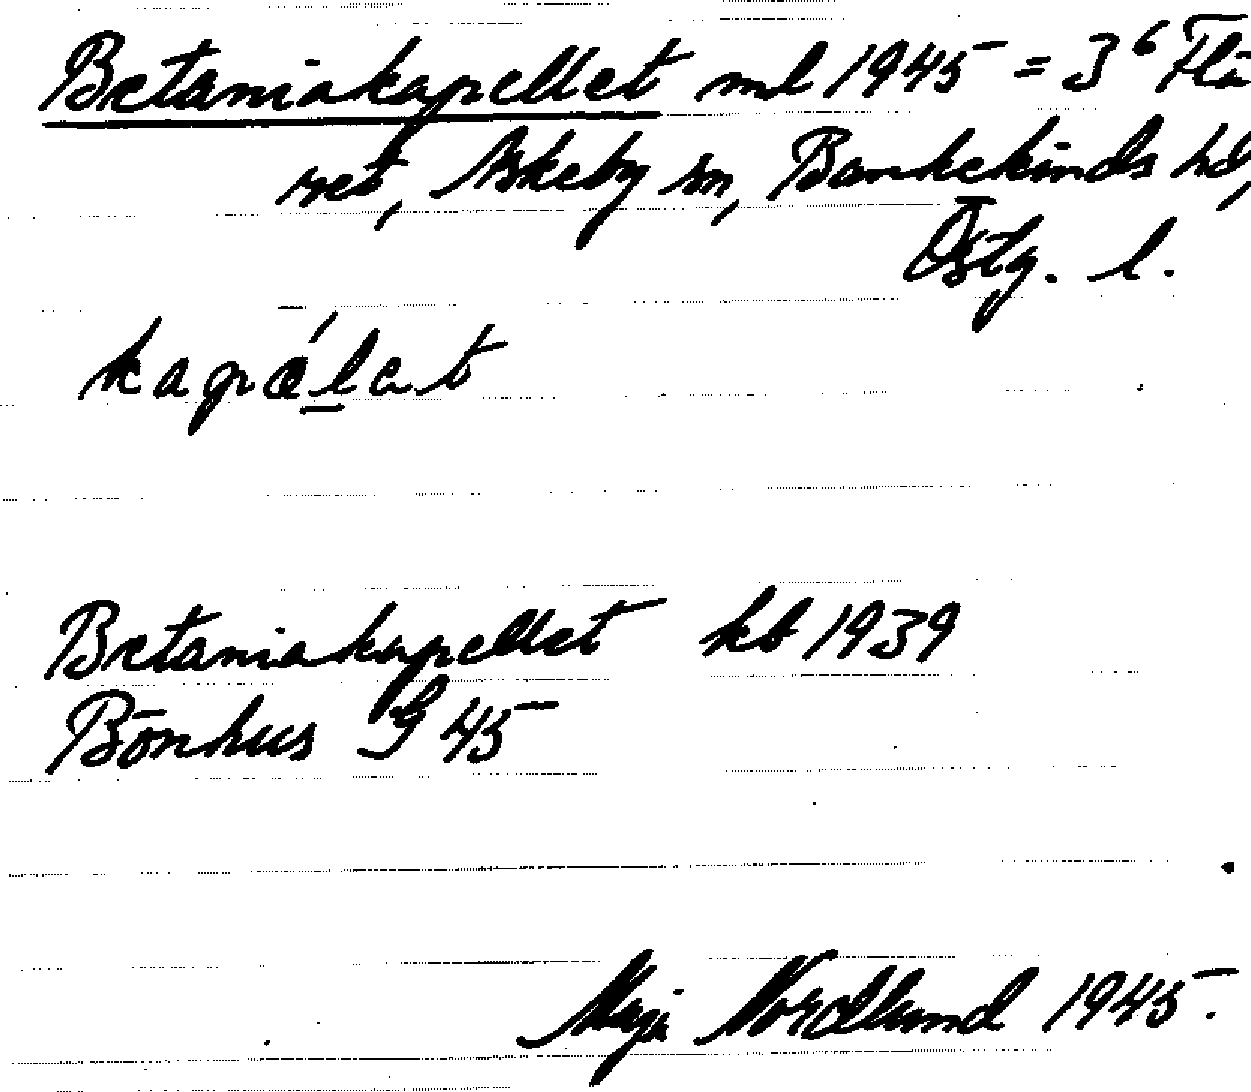 Betaniakapellet ml 1945 = 3⁶ Flä
ret, Askeby sn, Bankekinds hd,
Östg. l.
kapælet
Betaniakapellet kb 1939
Bönhus G 45
Maja Nordlund 1945.